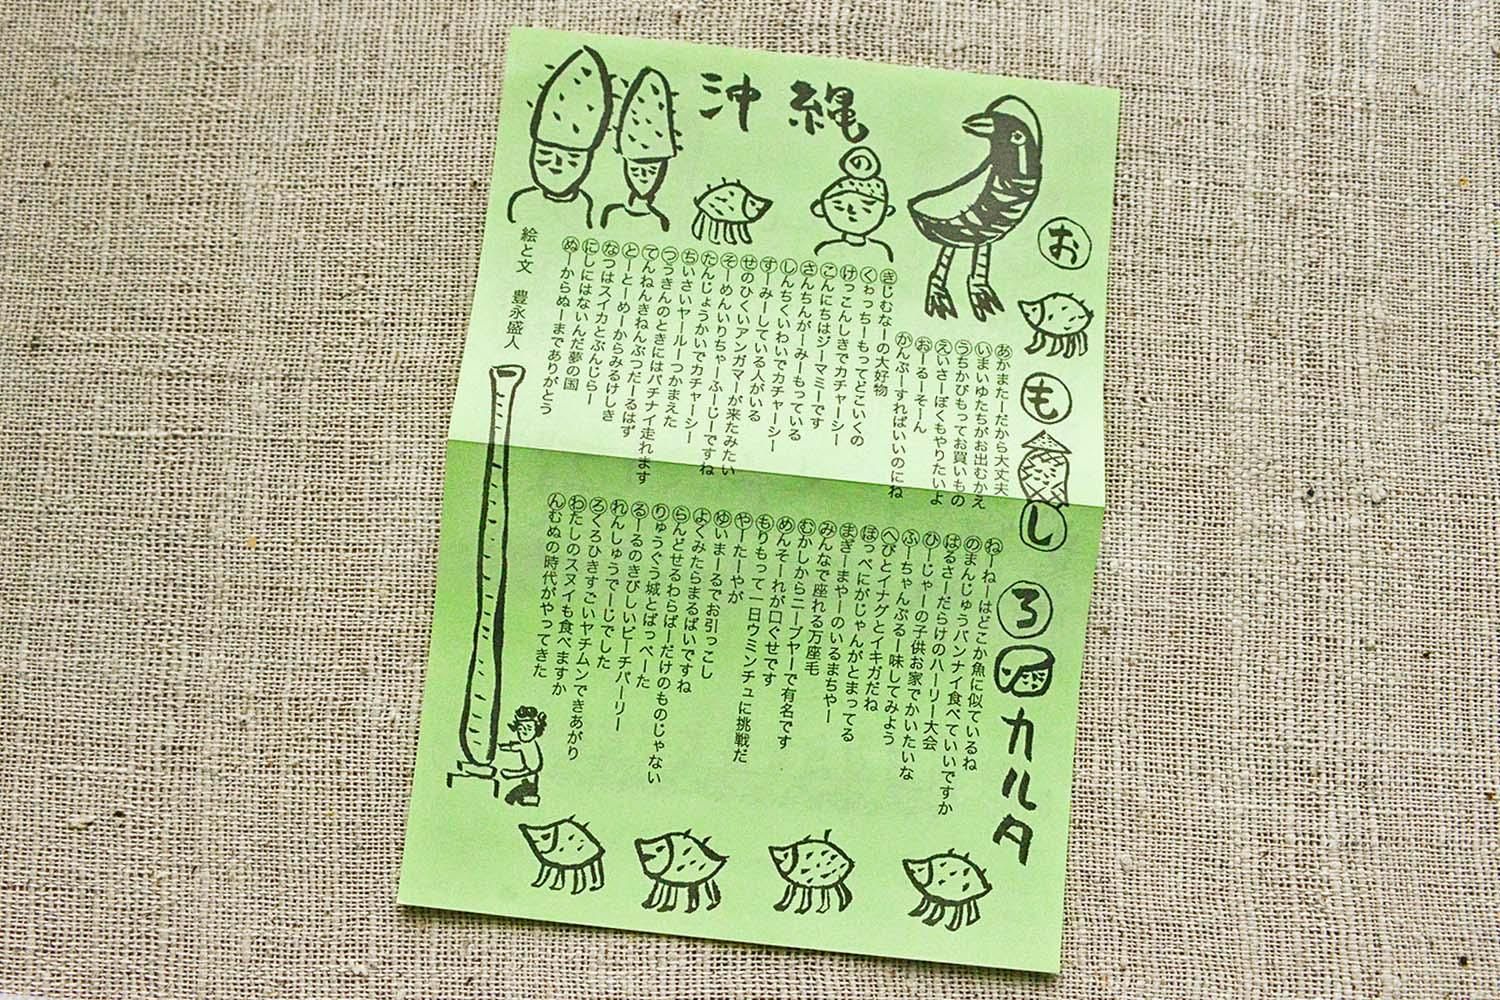 沖縄の
おもしろカルタ
あかまたーだから大丈夫
いまいゆたちがお出むかえ
うちかびもってお買いもの
えいさーぼくもやりたいよ
おーるーそーん
かんぷーすればいいのにね
きじむなーの大好物
くゎっちーもってどこいくの
けっこんしきでカチャーシー
こんにちはジーマミーです
さんちんがーみーもっている
しんちくいわいでカチャーシー
すーみーしている人がいる
せのひくいアンガマーが来たみたい
そーめんいりちゃーふーじーですね
たんじょうかいでカチャーシー
ちいさいヤールーつかまえた
つうきんのときにはパチナイ走れます
てんねんきねんぶつだーるはず
とーとーめーからみるけしき
なつはスイカとぶんじらー
にしにはないんだ夢の国
ぬーからぬーまでありがとう
ねーねーはどこか魚に似ているね
のまんじゅうバンナイ食べていいですか
はるさーだらけのハーリー大会
ひーじゃーの子供お家でかいたいな
ふーちゃんぷるー味してみよう
へびとイナグとイキガだね
ほっぺにがじゃんがとまってる
まぎーまやーのいるまちやー
みんなで座れる万座毛
むかしからニーブヤーで有名です
めんそーれが口ぐせです
もりもって一日ウミンチュに挑戦だ
やーたーやが
ゆいまーるでお引っこし
よくみたらまるばいですね
らんどせるわらばーだけのものじゃない
りゅうぐう城とばっぺーた
るーるのきびしいビーチパーリー
れんしゅうでーじでした
ろくろひきすごいヤチムンできあがり
わたしのスヌイも食べますか
んむぬの時代がやってきた
絵と文 豊永盛人